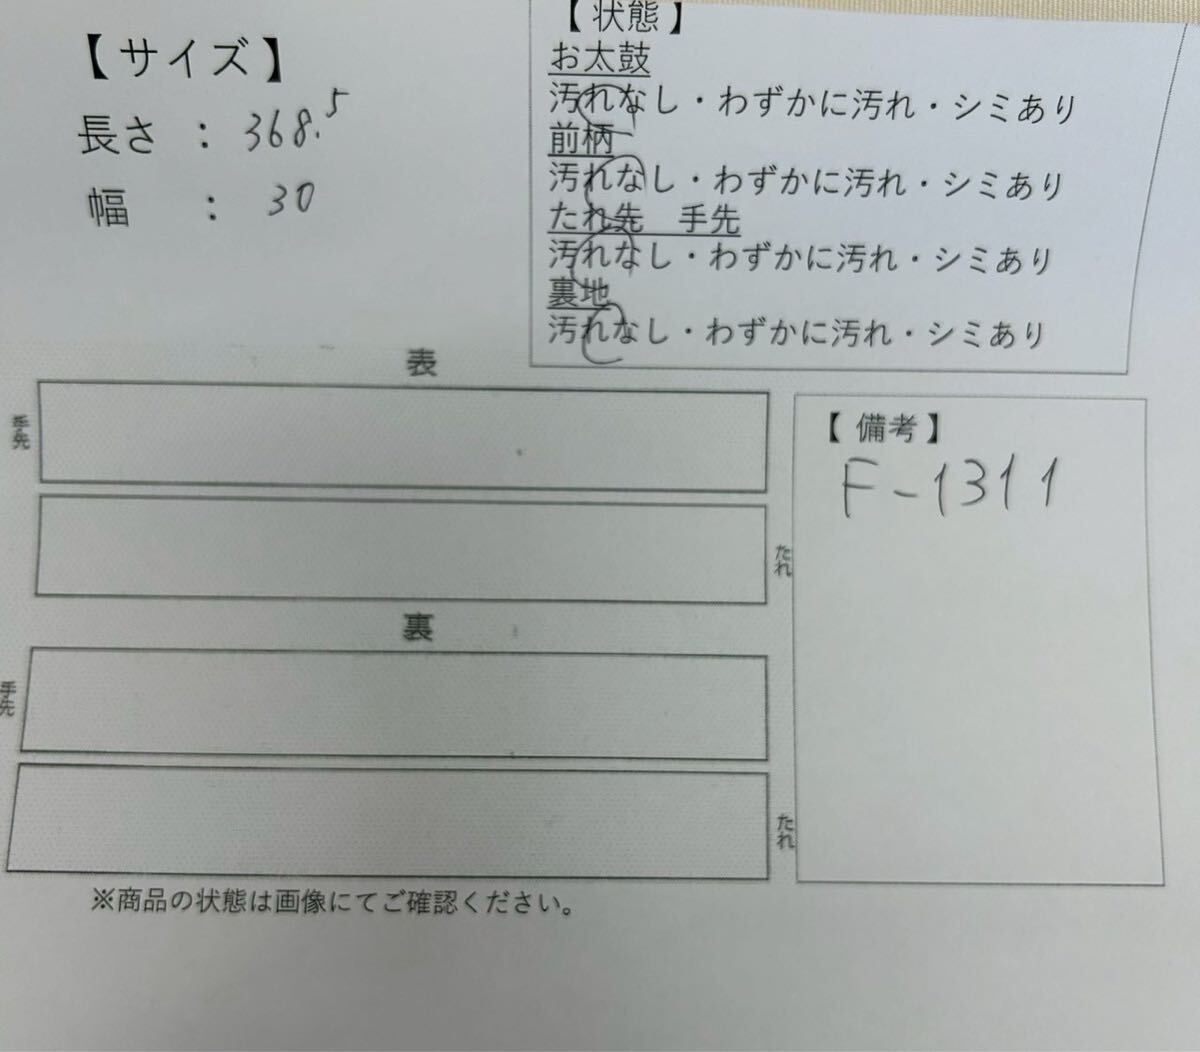 【サイズ】
長さ : 368.5
幅 : 30
【状態】
お太鼓
汚れなし・わずかに汚れ・シミあり
前柄
汚れなし・わずかに汚れ・シミあり
たれ先 手先
汚れなし・わずかに汚れ・シミあり
裏地
汚れなし・わずかに汚れ・シミあり
表
手先
たれ
裏
手先
たれ
【備考】
F-1311
※商品の状態は画像にてご確認ください。